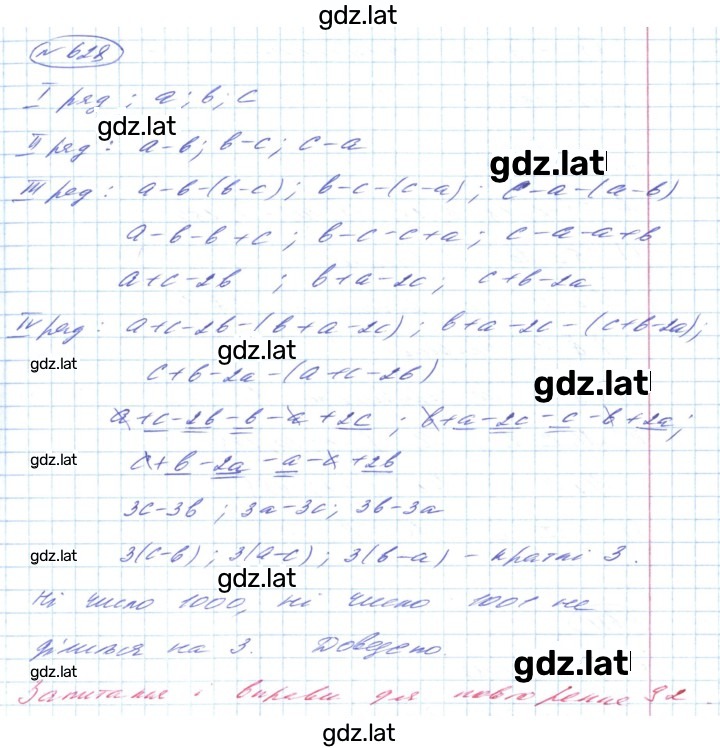 gdz.lat
№ 628
I ряд ; a; b; c
gdz.lat
II ряд: a-b; b-c; c-a
gdz.lat
III ряд: a-b-(b-c); b-c-(c-a); c-a-(a-b)
a-b-b+c; b-c-c+a; c-a-a+b
a+c-2b ; b+a-2c; c+b-2a
IV ряд: a+c-2b-(b+a-2c); b+a-2c-(c+b-2a);
gdz.lat
gdz.lat
c+b-2a-(a+c-2b)
gdz.lat
a+c-2b-b-a+2c ; b+a-2c-c-b+2a;
gdz.lat
c+b-2a-a-c+2b
3c-3b ; 3a-3c; 3b-3a
gdz.lat
3(c-b); 3(a-c); 3(b-a) - кратні 3.
gdz.lat
Ні число 1000, ні число 1001 не
ділиться на 3. Доведено.
gdz.lat
gdz.lat
Запитання і вправи для повторення § 2.
gdz.lat